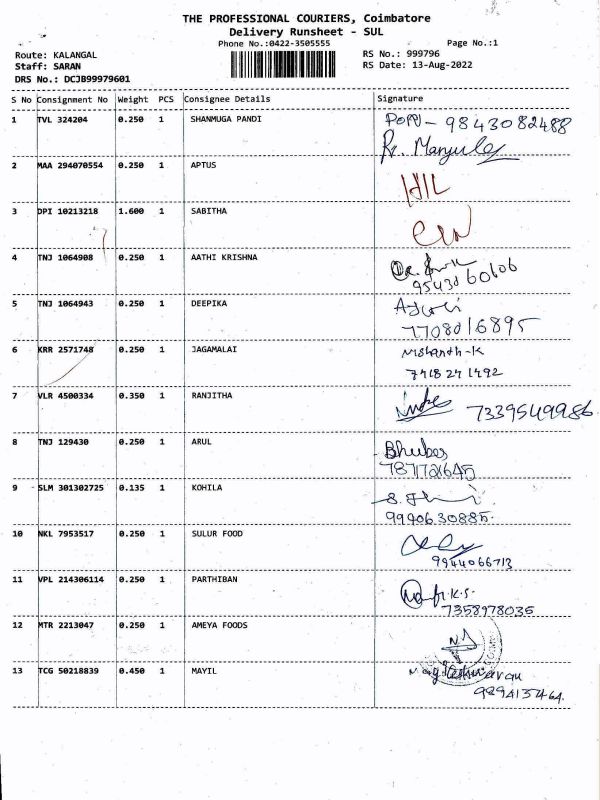 THE PROFESSIONAL COURIERS, Coimbatore
Delivery Runsheet - SUL
Phone No.:0422-3505555 Page No.:1
Route: KALANGAL RS No.: 999796
Staff: SARAN RS Date: 13-Aug-2022
DRS No.: DCJB99979601
S No Consignment No Weight PCS Consignee Details Signature
1 TVL 324204 0.250 1 SHANMUGA PANDI 9843082488
2 MAA 294070554 0.250 1 APTUS
3 DPI 10213218 1.600 1 SABITHA
4 TNJ 1064908 0.250 1 AATHI KRISHNA
9543060606
5 TNJ 1064943 0.250 1 DEEPIKA
7708016895
6 KRR 2571748 0.250 1 JAGAMALAI Nishanth-K
7 VLR 4500334 0.350 1 RANJITHA 7339549986
8 TNJ 129430 0.250 1 ARUL
7871721645
9 SLM 301302725 0.135 1 KOHILA
9940630885.
10 NKL 7953517 0.250 1 SULUR FOOD
9944066713
11 VPL 214306114 0.250 1 PARTHIBAN
7358978035
12 MTR 2213047 0.250 1 AMEYA FOODS
13 TCG 50218839 0.450 1 MAYIL